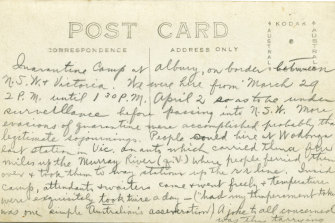 POST CARD
CORRESPONDENCE
ADDRESS ONLY
AUSTRAL
KODAK
AUSTRAL
Quarantine Camp at Albury, on border between
N.S.W. & Victoria. We were here from March 29
2 P.M. until 1 30 P.M. April 2 so as to be under
surveillance before passing into N.S.W. More
evasions of quarantine were accomplished probably than
legitimate sojournings. People would hire at Wodonga
last station in Vic, an auto which carried them a few
miles up the Murray River (q.v.) where people ferried them
over & took them to way stations up the r.r. line. Inside
camp, attendants & waiters came & went freely, & temperatures
were exquisitely took twice a day — (had my thermometer taken
no one simple Australian's assertion) A joke to all concerned